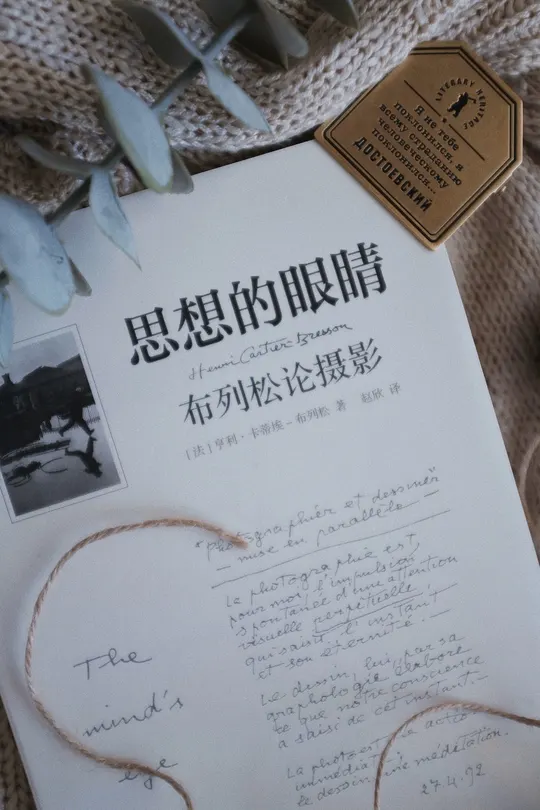 LITERARY HERITAGE
Я не тебе
поклонился, я
всему страданию
человеческому
поклонился...
ДОСТОЕВСКИЙ
思想的眼睛
Henri Cartier-Bresson
布列松论摄影
[法]亨利·卡蒂埃-布列松 著 赵欣 译
"photographier et dessiner"
— mise en parallèle —
La photographie est,
pour moi, l'impulsion
spontanée d'une attention
visuelle perpétuelle,
qui saisit l'instant
et son éternité. —
Le dessin, lui, par sa
graphologie élabore
ce que notre conscience
a saisi de cet instant. —
La photo est une action
immédiate;
le dessin une méditation.
27.4.92
The
mind's
eye